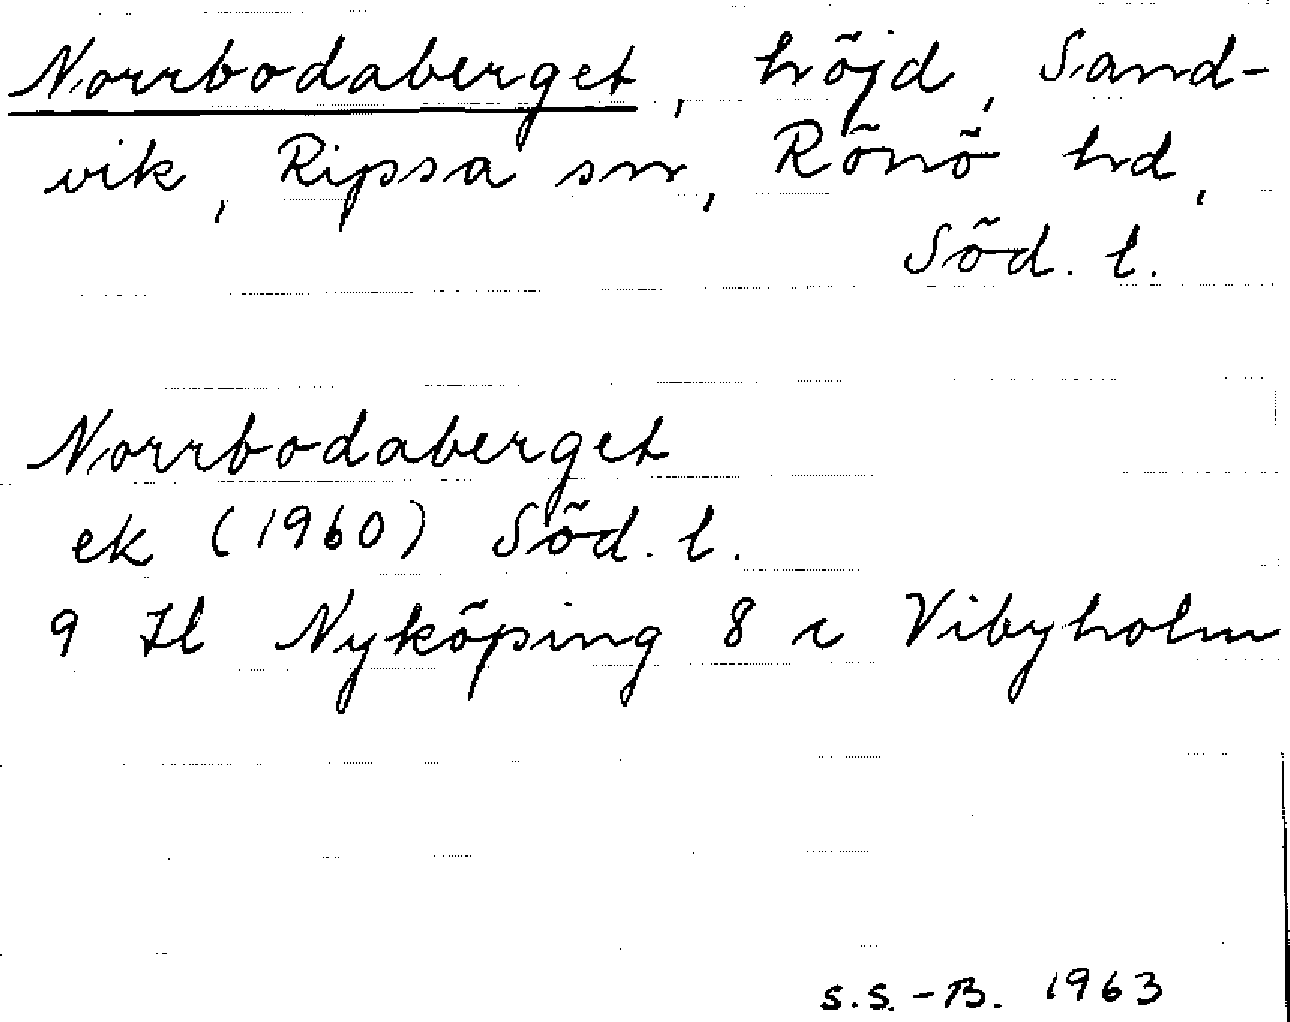 Norrbodaberget, höjd, Sand-
vik, Ripsa sn, Rönö hd,
Söd. l.
Norrbodaberget
ek (1960) Söd. l.
9 H Nyköping 8 c Vibyholm
S.S.-B. 1963